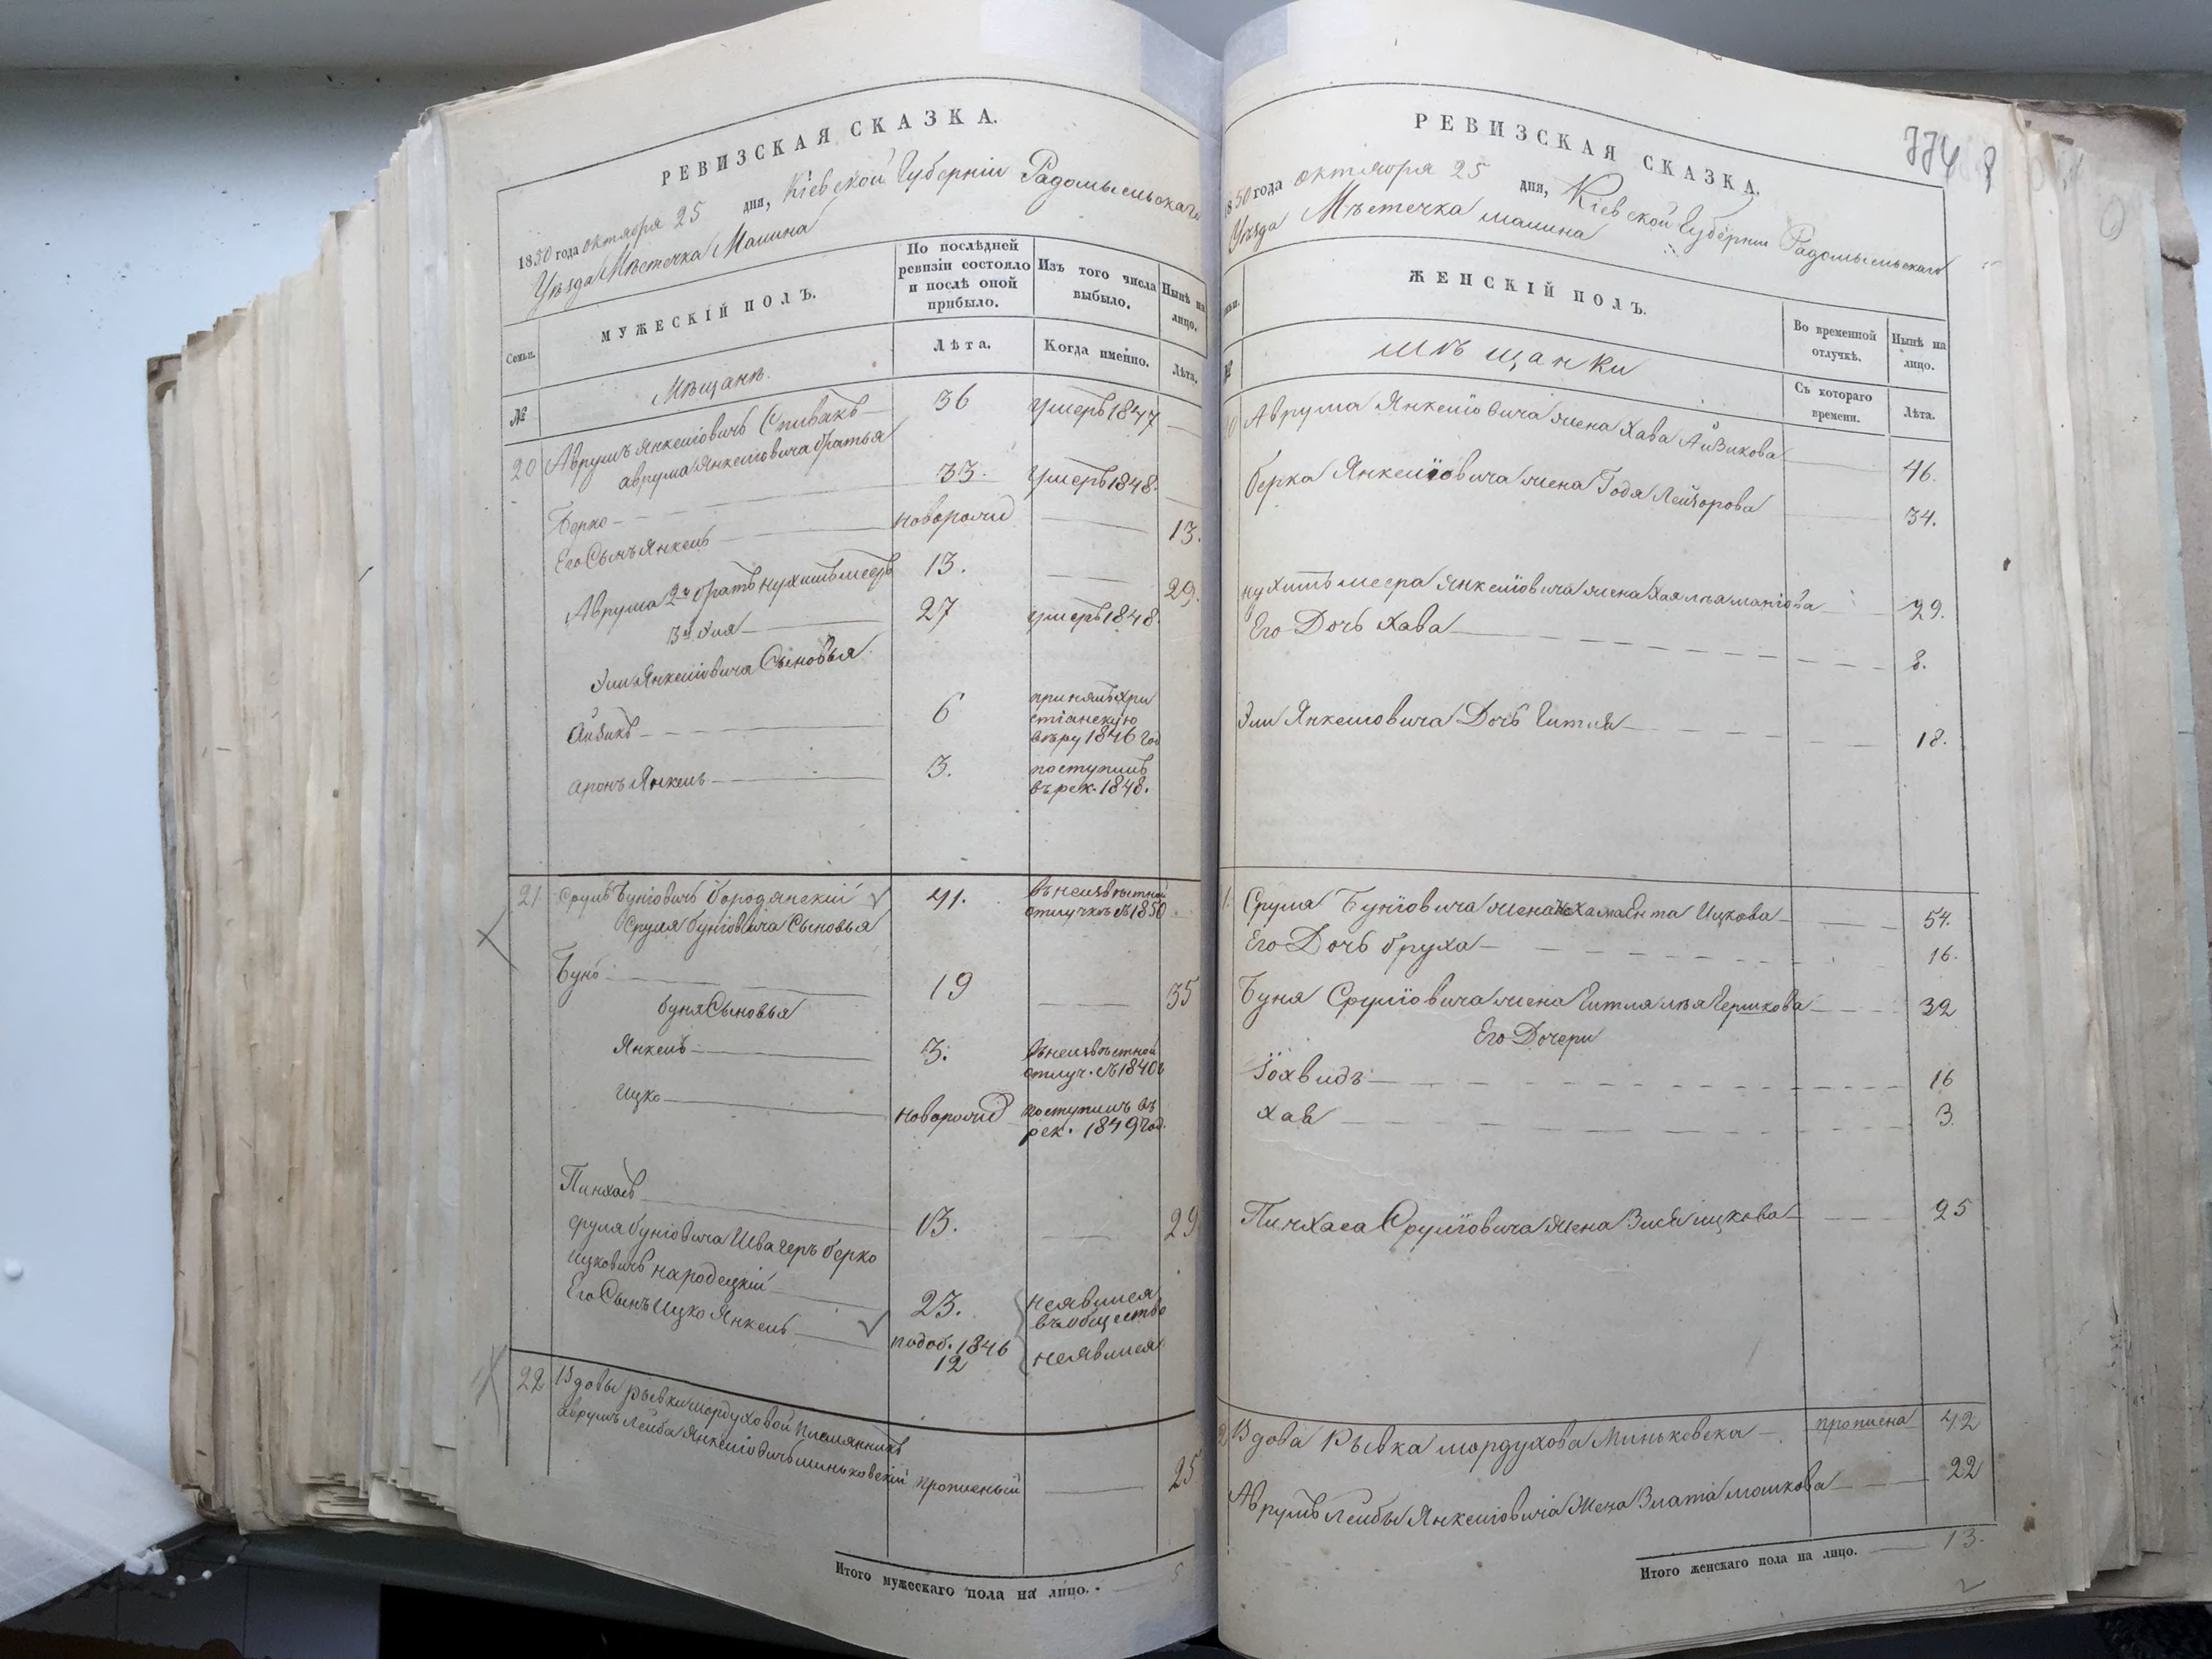 РЕВИЗСКАЯ СКАЗКА.
1850 года октября 25 дня, Кіевской Губерніи Радомысльскаго
Уѣзда Мѣстечка Малина
Семьи.
МУЖЕСКІЙ ПОЛЪ.
По послѣдней ревизіи состояло и послѣ оной прибыло.
Изъ того числа выбыло.
Нынѣ на лицо.
№
Мѣщане.
Лѣта.
Когда именно.
Лѣта.
20 Аврумъ Янкеліовичъ Спивакъ 36 умеръ 1847
Аврума Янкеліовича братья
Берко 33. умеръ 1848.
Его Сынъ Янкель новорожд 13.
Аврума 2й братъ Нухимъ Меер 13. 29.
3й Хия 27 умеръ 1848.
Эли Янкеліовича Сыновья
Айзикъ 6 принялъ хри
стіанскую
вѣру 1846 год
Аронъ Янкель 3. поступилъ
въ рек. 1848.
21 Сруль Буніовичъ Бородянскій 41. въ неизвѣстной
отлучкѣ съ 1850
Сруля Буніовича Сыновья
Бунь 19 35
Буня Сыновья
Янкель 3. въ неизвѣстной
отлуч. съ 1840
Ицко новорожд поступилъ въ
рек. 1849 год.
Пинхасъ 13. 29
Сруля Буніовича Швагеръ Берко
Ицковичъ Народецкій 23. неявился
въ общество
Его Сынъ Ицко Янкель по доб. 1846
12 неявился
22 Вдовы Рывки Мордуховой Племянникъ
Аврумъ Лейба Янкеліовичъ Миньковскій прописный 25
Итого мужескаго пола на лицо.
РЕВИЗСКАЯ СКАЗКА.
774 8
1850 года октября 25 дня, Кіевской Губерніи Радомысльскаго
Уѣзда Мѣстечка Малина
ЖЕНСКІЙ ПОЛЪ.
Во временной отлучкѣ.
Нынѣ на лицо.
№
Мѣщанки
Съ котораго времени.
Лѣта.
Аврума Янкеліовича жена Хава Айзикова 46.
Берка Янкеліовича жена Годя Лейзорова 34.
Нухимъ Меера Янкеліовича жена Хая 29.
Его Дочь Хава 8.
Эли Янкеліовича Дочь Гитля 18.
Сруля Буніовича жена Ента Ицкова 54.
Его Дочь Бруха 16.
Буня Сруліовича жена Гитля Лея Гершкова 32
Его Дочери
Іохвидъ 16
Хав 3
Пинхаса Сруліовича жена Зися Ицкова 25
Вдова Рывка Мордухова Миньковска прописна 42
Аврумъ Лейбы Янкеліовича Жена Злата Мошкова 22
Итого женскаго пола на лицо. 13.